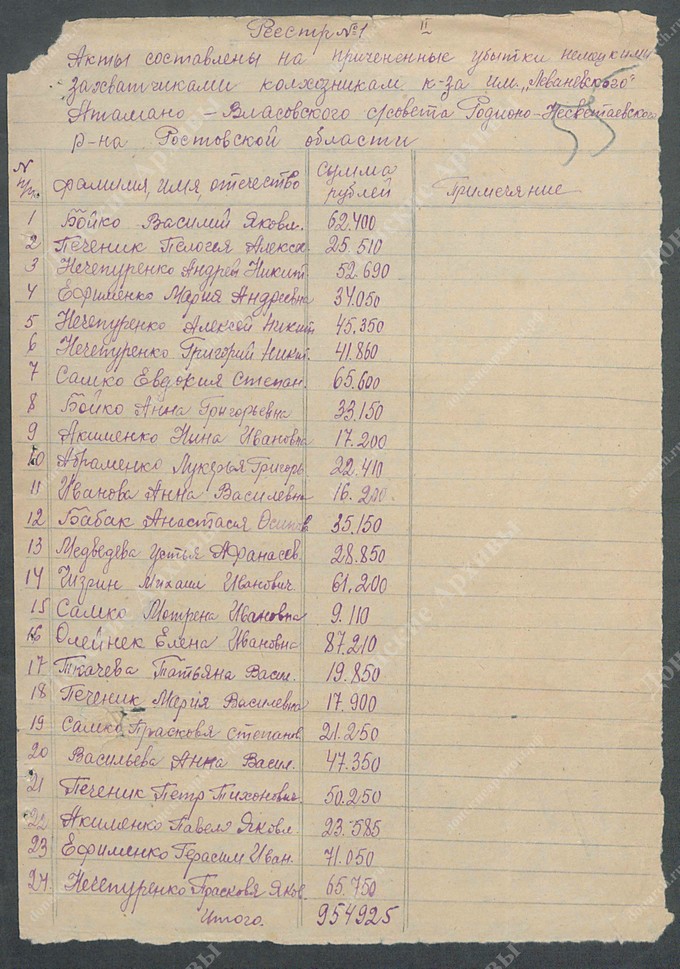 Реестр №1 II
Акты составлены на причененные убытки немецкими
захватчиками колхозникам к-за им. „Леваневского"
Атамано - Власовского с/совета Родионо-Несветаевского
р-на Ростовской области
55
N п/п. фамилия, имя, отечество сумма рублей Примечание
1 Бойко Василий Яковл. 62.400
2 Печеник Пелогея Алекса. 25.510
3 Нечепуренко Андрей Никит 52.690
4 Ефименко Мария Андреевна 34.050
5 Нечепуренко Алексей Никит 45.350
6 Нечепуренко Григорий Никит. 41.860
7 Самко Евдокия Степан. 65.600
8 Бойко Анна Григорьевна 33.150
9 Акименко Нина Ивановна 17.200
10 Абраменко Лукерья Григорь. 22.410
11 Иванова Анна Василевна 16.200
12 Бабак Анастасия Осипов 35.150
13 Медведева Устья Афанасов. 28.850
14 Михаил Иванович 61.200
15 Самко Мотрена Ивановна 9.110
16 Олейнек Елена Ивановна 87.210
17 Ткачева Татьяна Васил. 19.850
18 Печеник Мария Василевна 17.900
19 Самко Прасковя Степанов 21.250
20 Васильева Анна Васил. 47.350
21 Печеник Петр Тихонович. 50.250
22 Акименко Павел Яковл. 23.585
23 Ефименко Герасим Иван. 71.050
24. Нечепуренко Прасковя Яков. 65.750
Итого. 954925